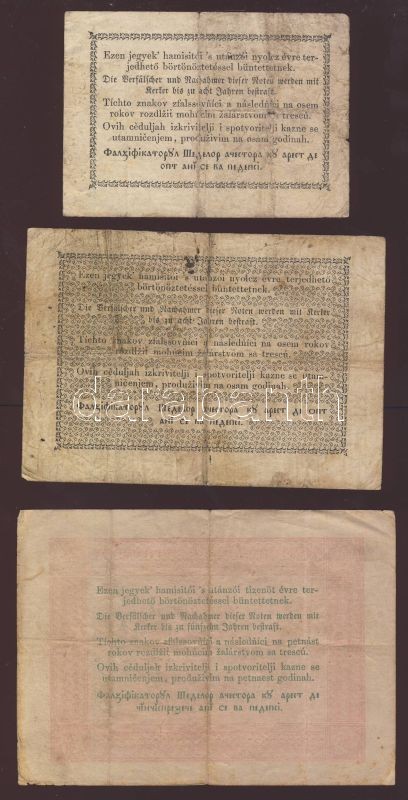 Ezen jegyek' hamisitói 's utánzói nyolcz évre ter-
jedhető börtönöztetéssel büntettetnek.
Die Verfälscher und Nachahmer dieser Noten werden mit
Kerker bis zu acht Jahren bestraft.
Tíchto znakov zfalssovňíci a následňíci na osem
rokov rozdlžiť mohúcím žalárstvom sa trescú.
Ovih cèduljah izkrivitelji i spotvoritelji kazne se
utamničenjem, produživim na osam godinah.
Фалсіфікаторꙋл Шеделор ачестора кꙋ арест де
опт анї се ва педепсі.
Ezen jegyek' hamisitói 's utánzói nyolcz évre terjedhető
börtönöztetéssel büntettetnek.
Die Verfälscher und Nachahmer dieser Noten werden mit Kerker
bis zu acht Jahren bestraft.
Tíchto znakov zfalssovňíci a následňíci na osem rokov
rozdlžiť mohúcím žalárstvom sa trescú.
Ovih cèduljah izkrivitelji i spotvoritelji kazne se utam-
ničenjem, produživim na osam godinah.
Фалсіфікаторꙋл Шеделор ачестора кꙋ арест де опт
анї се ва педепсі.
darabanth
Ezen jegyek' hamisitói 's utánzói tizenöt évre ter-
jedhető börtönöztetéssel büntettetnek.
Die Verfälscher und Nachahmer dieser Noten werden mit
Kerker bis zu fünfzehn Jahren bestraft.
Tíchto znakov zfalssovňíci a následňíci na petnást
rokov rozdlžiť mohúcím žalárstvom sa trescú.
Ovih cèduljah izkrivitelji i spotvoritelji kazne se
utamničenjem, produživim na petnaest godinah.
Фалсіфікаторꙋл Шеделор ачестора кꙋ арест де
чїнчїспрезече анї се ва педепсі.